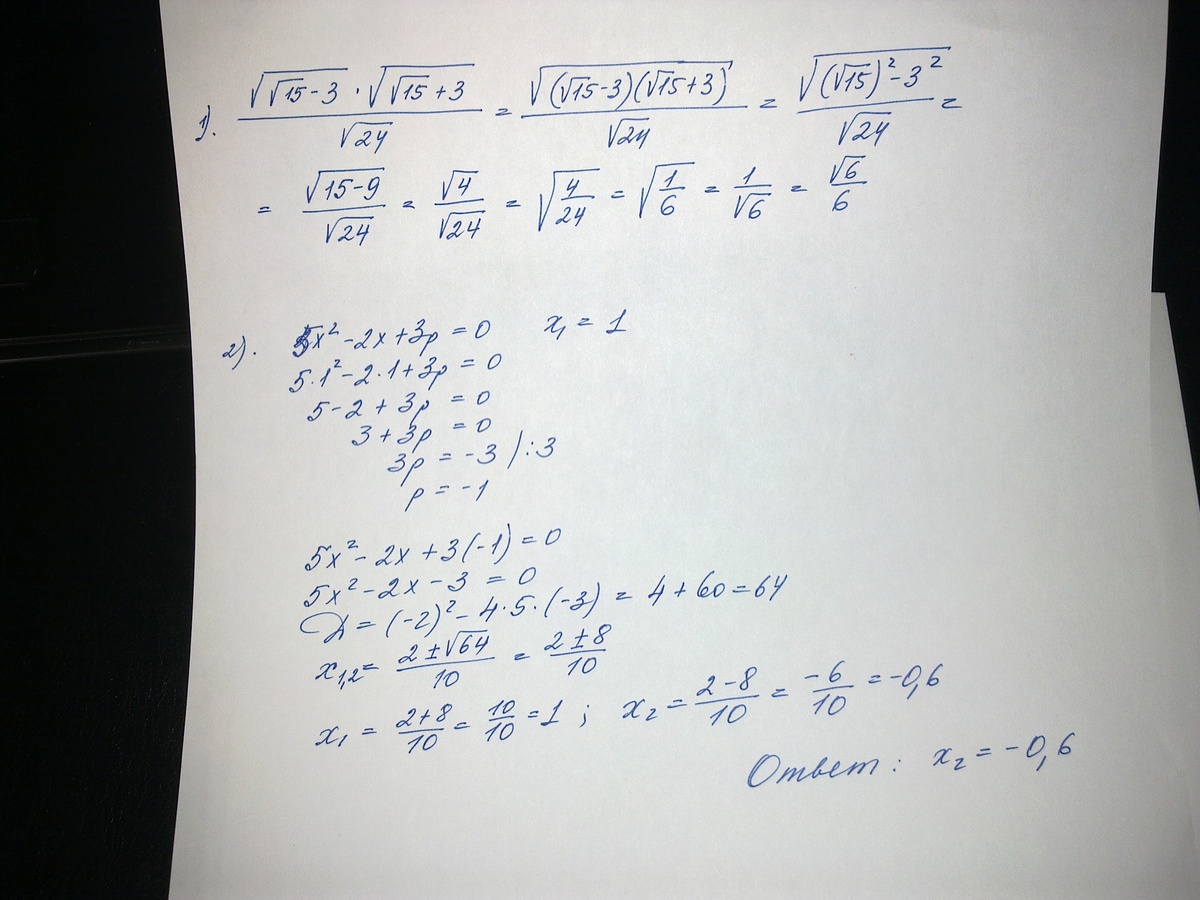 1). (√(√15-3) · √(√15+3))/√24 = √((√15-3)(√15+3))/√24 = √((√15)²-3²)/√24 =
= √(15-9)/√24 = √4/√24 = √(4/24) = √(1/6) = 1/√6 = √6/6
2). 5x²-2x+3p=0 x₁=1
5·1²-2·1+3p=0
5-2+3p=0
3+3p=0
3p=-3 /:3
p=-1
5x²-2x+3(-1)=0
5x²-2x-3=0
D=(-2)²-4·5·(-3)=4+60=64
x₁,₂=(2±√64)/10=(2±8)/10
x₁=(2+8)/10=10/10=1; x₂=(2-8)/10=-6/10=-0,6
Ответ: x₂=-0,6